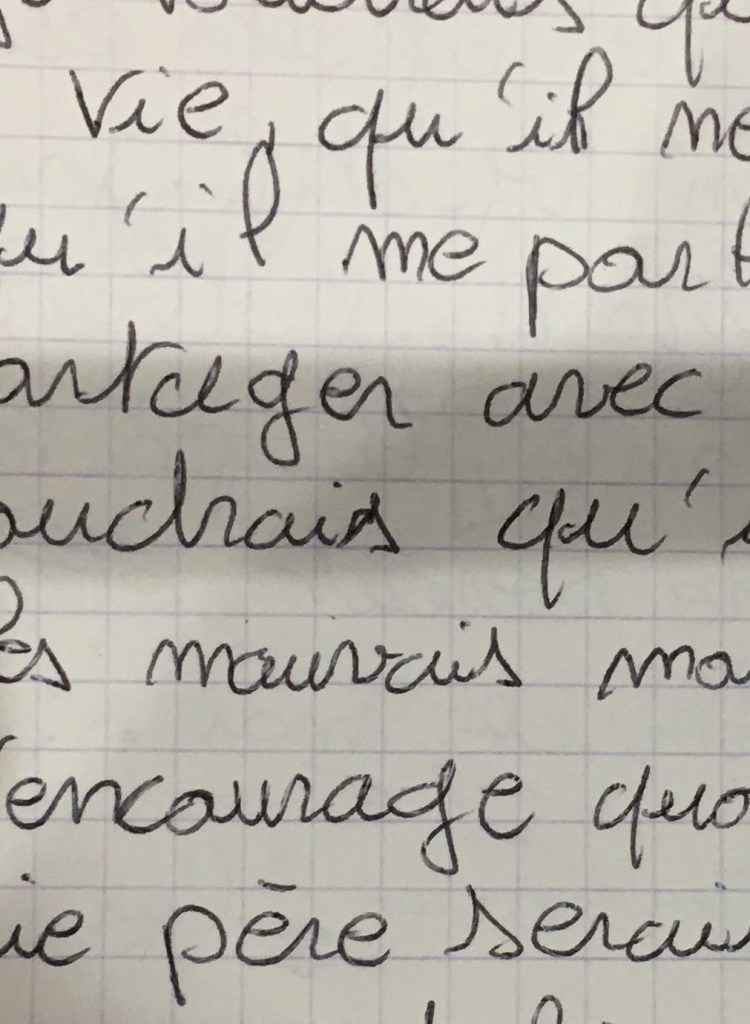 vie, qu'il me
qu'il me part
artager avec
oudrais qu'i
les mauvais mo
encourage qua
ie père serais